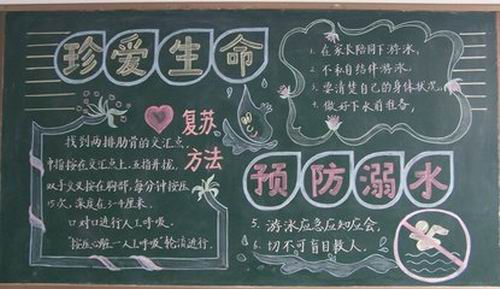 珍爱生命
复苏方法
找到两排肋骨的交汇点,
中指按在交汇点上,五指并拢,
双手交叉按在胸部,每分钟按压
15次,深度在3-4厘米.
口对口进行人工呼吸.
"按压心脏—人工呼吸"轮流进行.
1. 在家长陪同下游泳,
2. 不私自结伴游泳.
3. 要清楚自己的身体状况.
4. 做好下水前准备,
预防溺水
5. 游泳应急应知应会,
6. 切不可盲目救人.